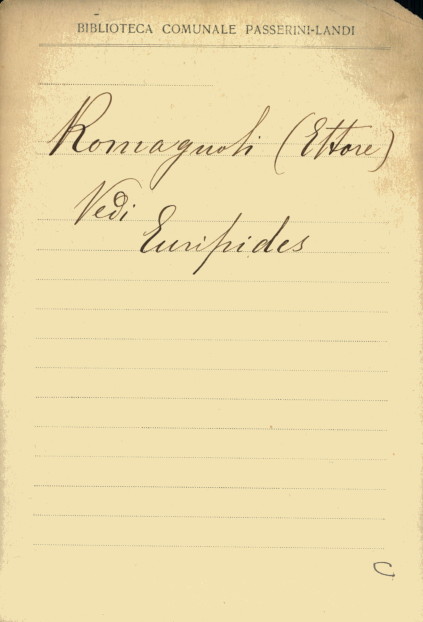 BIBLIOTECA COMUNALE PASSERINI-LANDI
Romagnoli (Ettore)
Vedi
Euripides
C